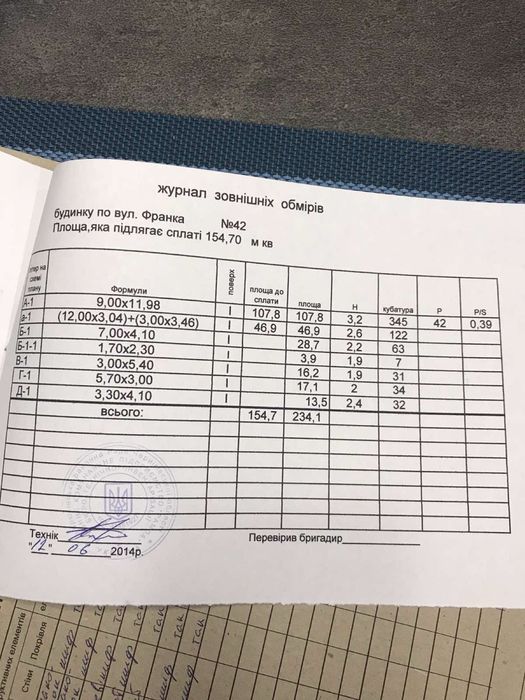 журнал зовнішніх обмірів
будинку по вул. Франка №42
Площа,яка підлягає сплаті 154,70 м кв
на схемі плану Формули поверх площа до сплати площа Н кубатура Р P/S
А-1 9,00х11,98 I 107,8 107,8 3,2 345 42 0,39
а-1 (12,00х3,04)+(3,00х3,46) I 46,9 46,9 2,6 122
Б-1 7,00х4,10 I 28,7 2,2 63
Б-1-1 1,70х2,30 I 3,9 1,9 7
В-1 3,00х5,40 I 16,2 1,9 31
Г-1 5,70х3,00 I 17,1 2 34
Д-1 3,30х4,10 I 13,5 2,4 32
всього: 154,7 234,1
Технік Перевірив бригадир
"12" 06 2014р.
Стіни
Покрівля